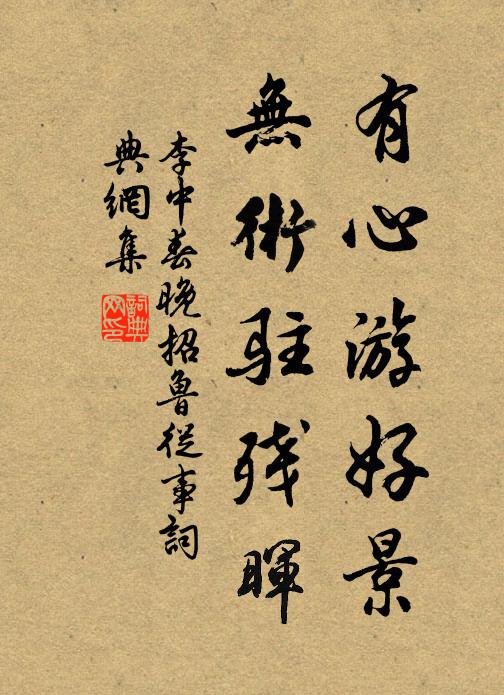 有心游好景
無術駐殘暉
李中春晚招魯從事詞
典網集
詞典網印